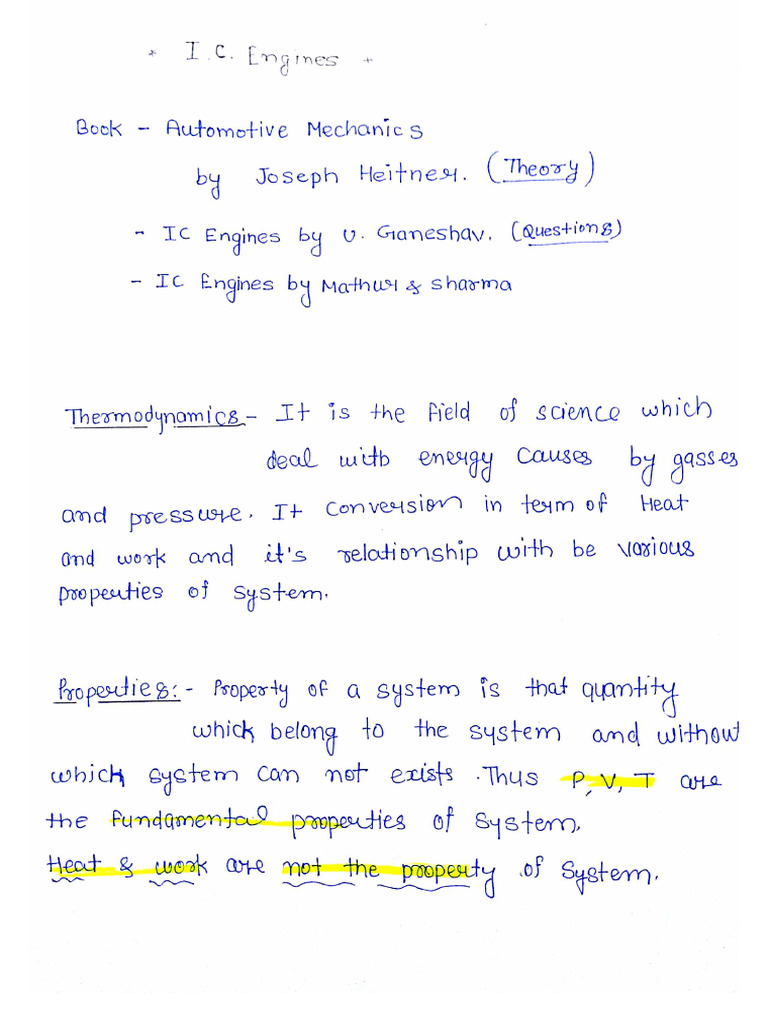 * I.C. Engines *
Book - Automotive Mechanics
by Joseph Heitner. (Theory)
- IC Engines by V. Ganeshav. (Questions)
- IC Engines by Mathur & Sharma
Thermodynamics - It is the field of science which
deal with energy causes by gasses
and pressure. It conversion in term of Heat
and work and it's relationship with be various
properties of system.
Properties:- Property of a system is that quantity
which belong to the system and without
which system can not exists. Thus P, V, T are
the fundamental properties of system.
Heat & work are not the property of system.